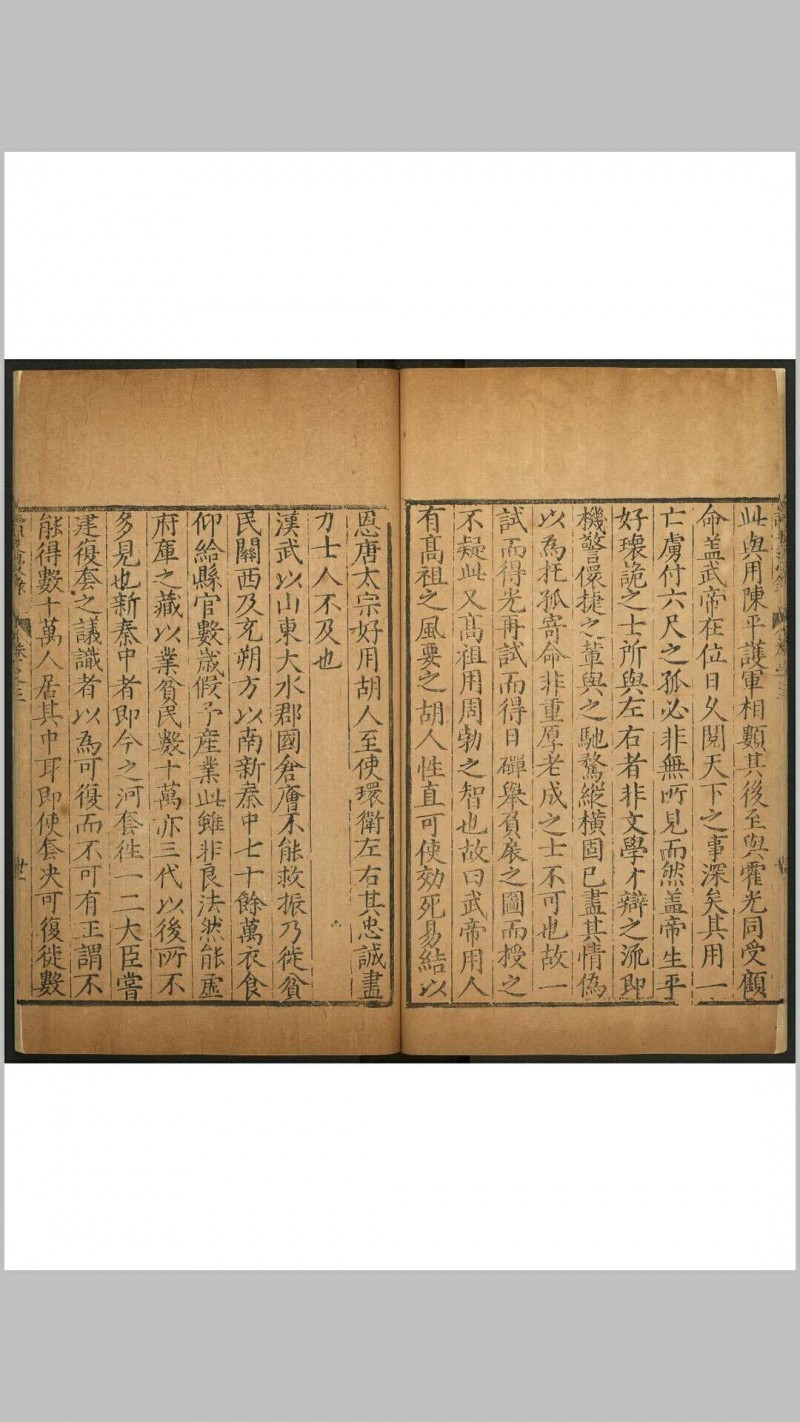 此與用陳平護軍相類其後至與霍光同受顧
命盖武帝在位日乆閱天下之事深矣其用一
亡虜付六尺之孤必非無所見而然盖帝生平
好瓌詭之士所與左右者非文學才辯之流即
機警儇捷之軰與之馳騖縱橫固已盡其情偽
以為托孤寄命非重厚老成之士不可也故一
試而得光再試而得日磾舉負扆之圖而授之
不疑此又髙祖用周勃之智也故曰武帝用人
有髙祖之風要之胡人性直可使効死易結以
恩唐太宗好用胡人至使環衛左右其忠誠盡
力士人不及也
漢武以山東大水郡國倉廥不能救振乃徙貧
民關西及充朔方以南新秦中七十餘萬衣食
仰給縣官數歳假予産業此雖非良法然能虛
府庫之藏以業貧民數十萬亦三代以後所不
多見也新秦中者即今之河套徃一二大臣嘗
建復套之議識者以為可復而不可有正謂不
能得數十萬人居其中耳即使套决可復徙數
卷之三
世